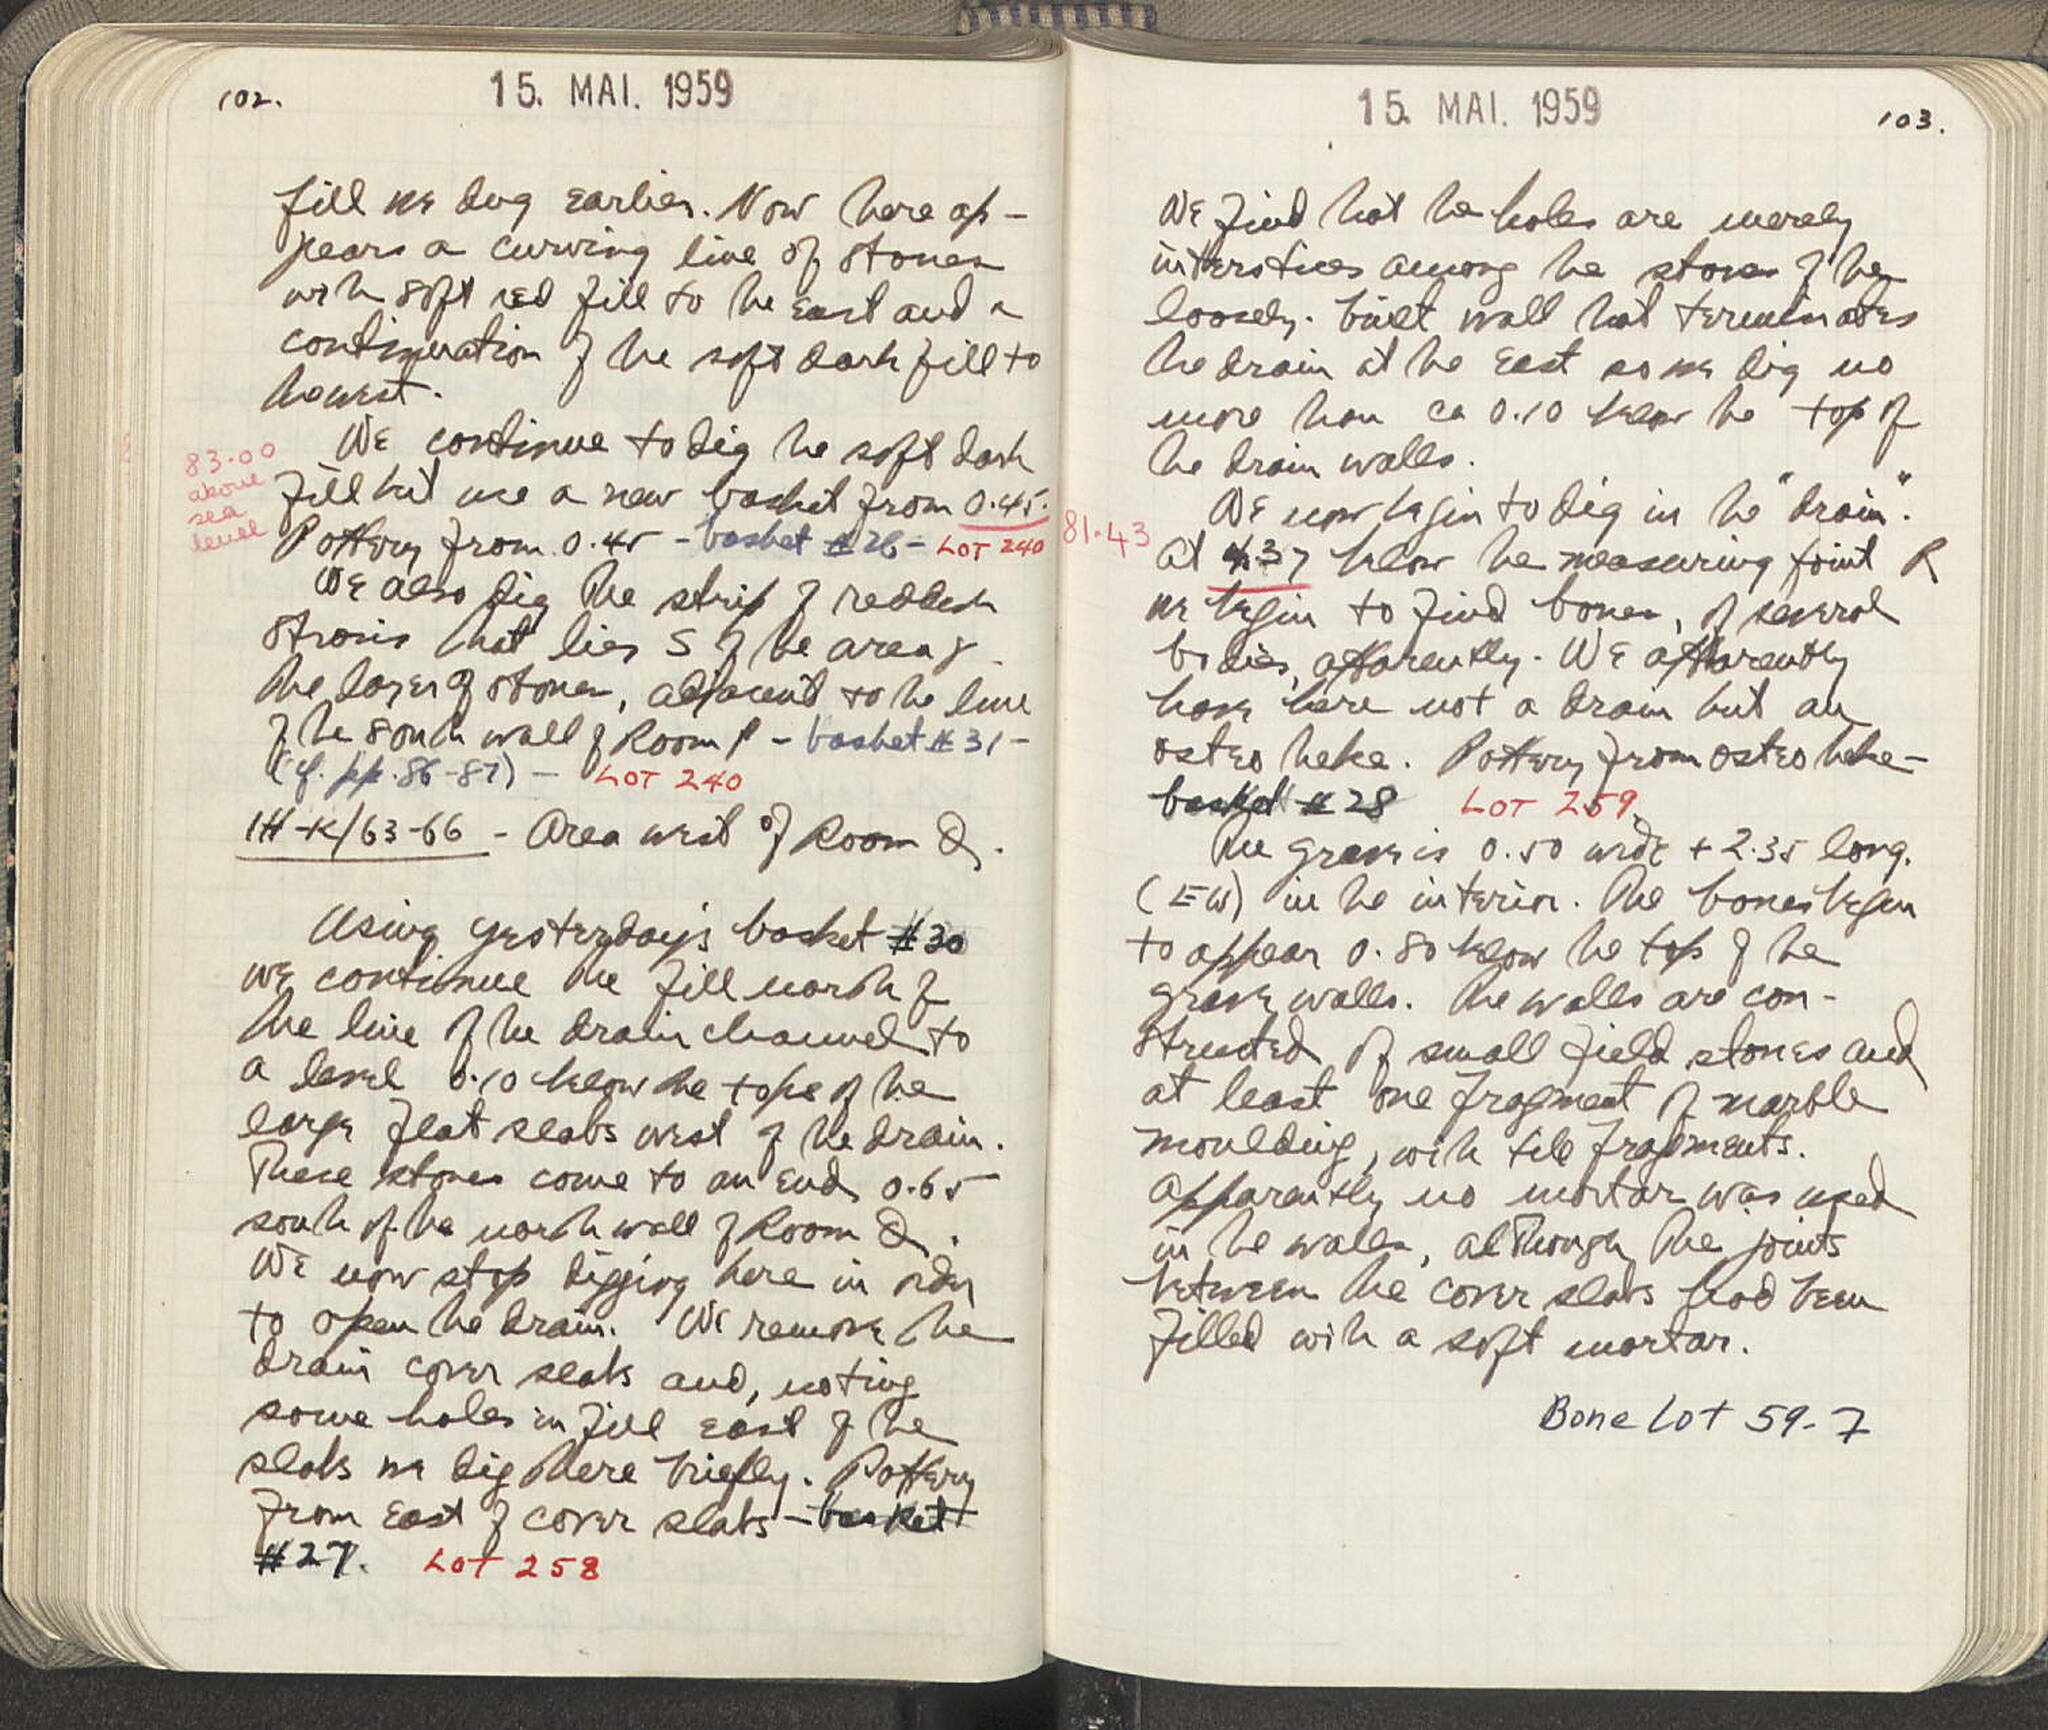 102.
15. MAI. 1959
fill we dug earlier. Now there ap-
pears a curving line of stones
with soft red fill to the east and a
continuation of the soft dark fill to
the west.
We continue to dig the soft dark
83.00
above
sea
level
fill but use a new basket from 0.45.
Pottery from 0.45 - basket #26 - LOT 240
We also dig the strip of reddish
stroses that lies S of the area of
the layer of stones, adjacent to the line
of the south wall of Room P - basket #31 -
(cf. pp. 86-87) - LOT 240
H-K/63-66 - Area west of Room Q.
Using yesterday's basket #30
we continue the fill north of
the line of the drain channel to
a level 0.10 below the tops of the
large flat slabs west of the drain.
These stones come to an end 0.65
south of the north wall of Room Q.
We now stop digging here in order
to open the drain. We remove the
drain cover slabs and, noting
some holes in fill east of the
slabs we dig there briefly. Pottery
from east of cover slabs - basket
#27. LOT 258
15. MAI. 1959
103.
We find that the holes are merely
interstices among the stones of the
loosely-built wall that terminates
the drain at the east so we dig no
more than ca 0.10 below the top of
the drain walls.
We now begin to dig in the "drain".
81.43
At 4.37 below the measuring point R
we begin to find bones, of several
bodies, apparently. We apparently
have here not a drain but an
osteotheke. Pottery from osteotheke -
basket #28 LOT 259.
The grave is 0.50 wide + 2.35 long.
(EW) in the interior. The bones began
to appear 0.80 below the top of the
grave walls. The walls are con-
structed of small field stones and
at least one fragment of marble
moulding, with tile fragments.
Apparently no mortar was used
in the walls, although the joints
between the cover slabs had been
filled with a soft mortar.
Bone Lot 59-7